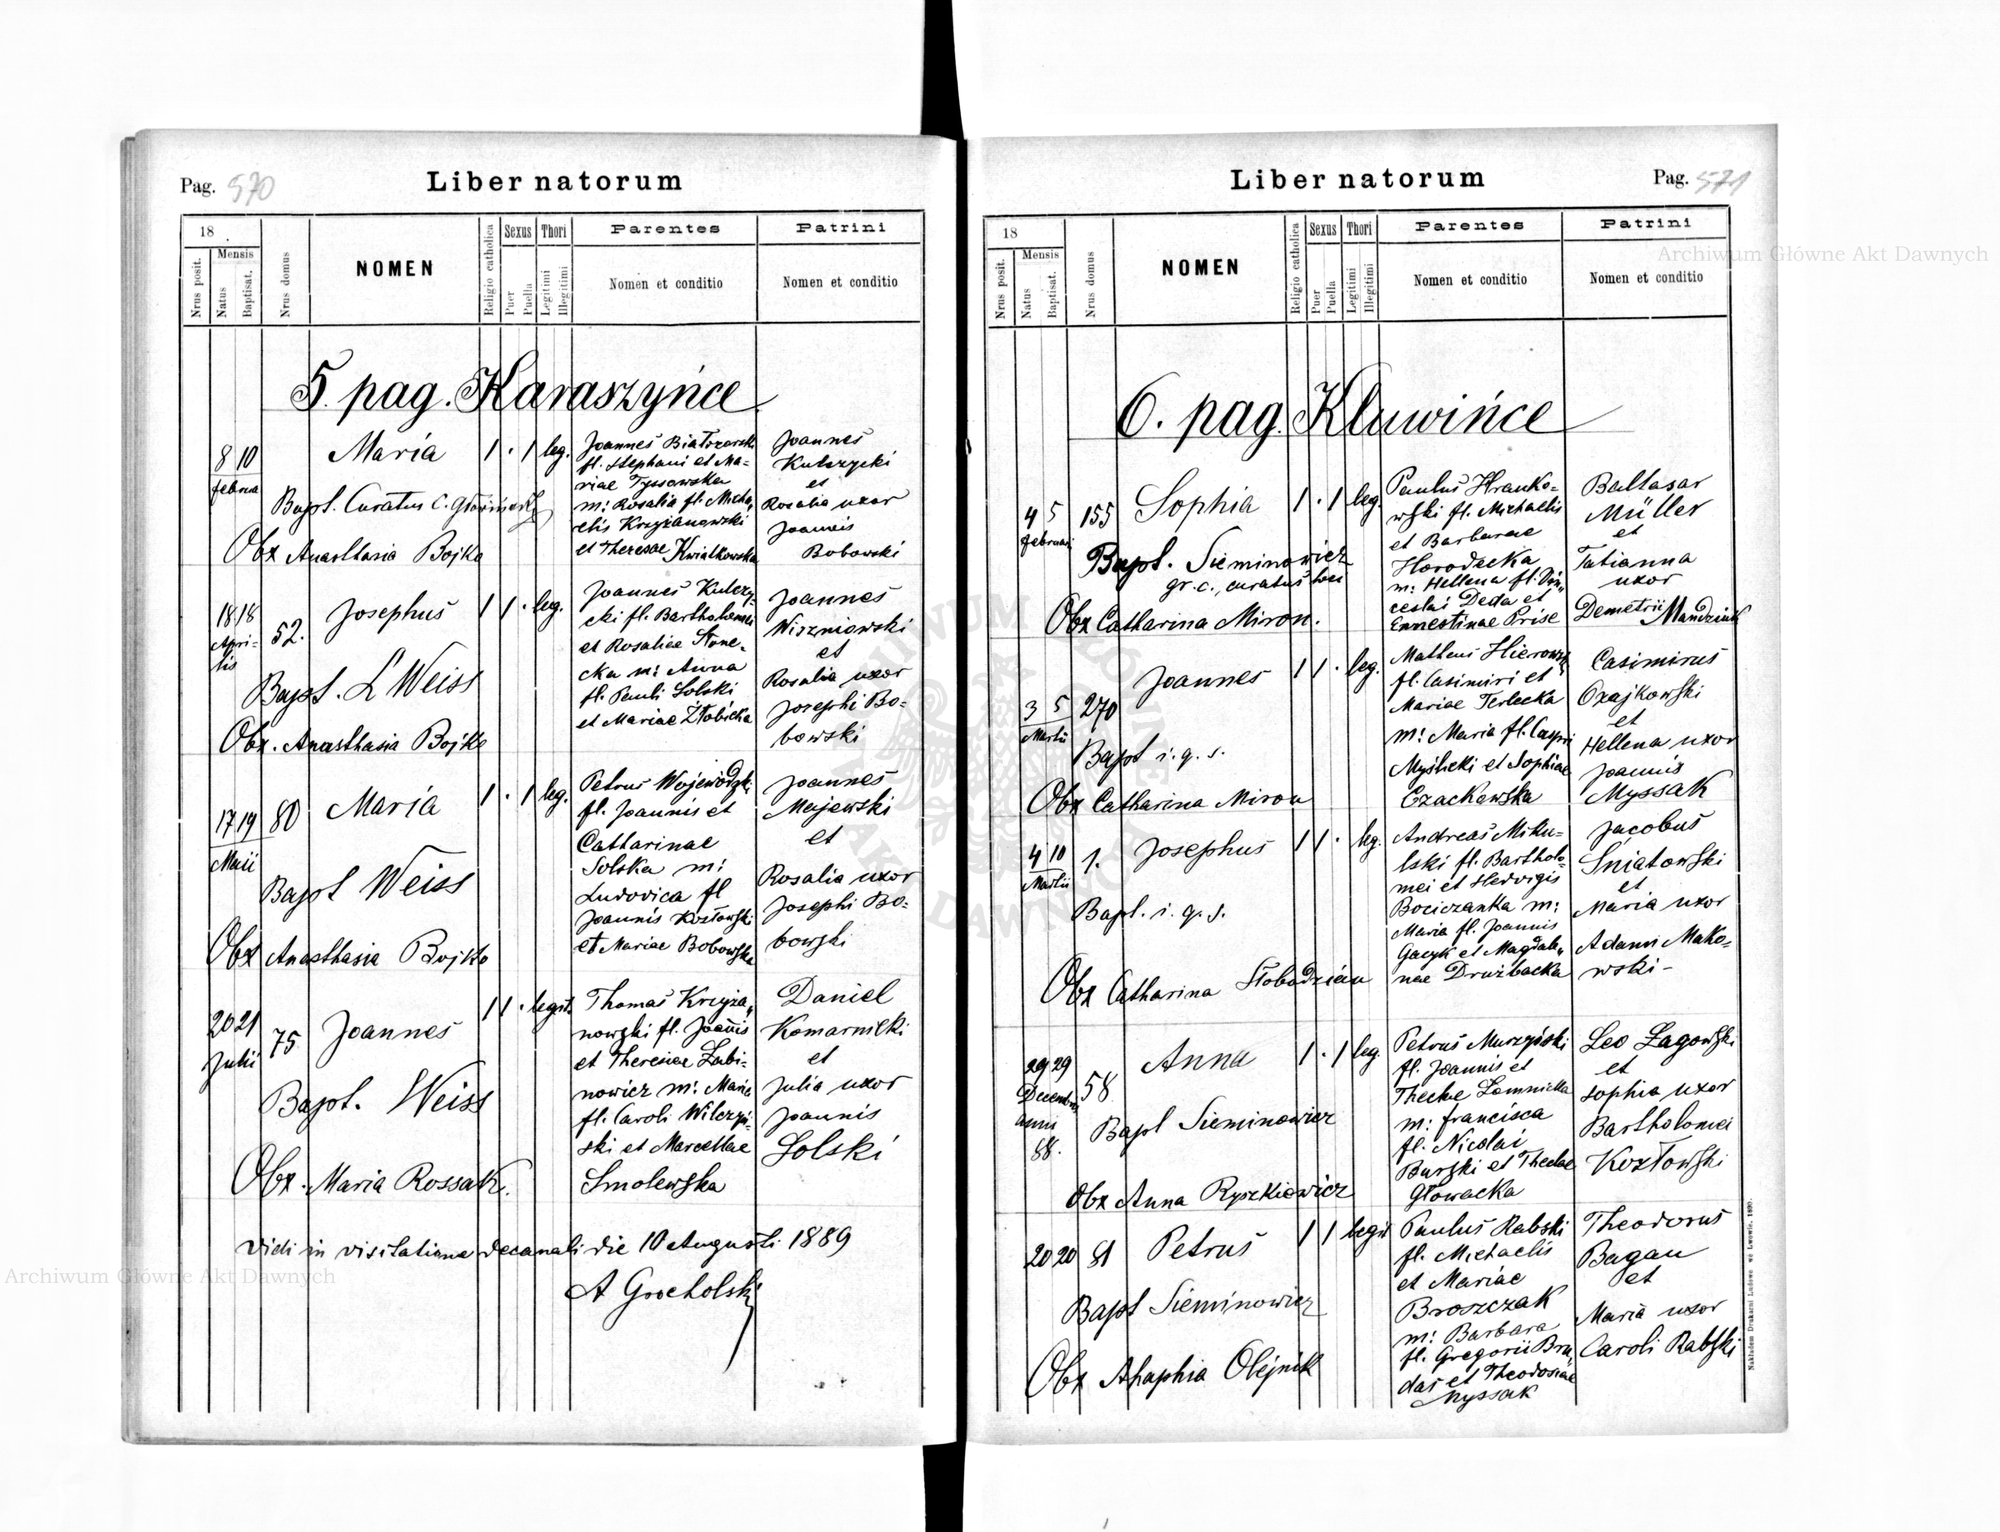 Pag. 570
Liber natorum
18
Mensis
Nrus posit.
Natus
Baptisat.
Nrus domus
NOMEN
Religio catholica
Sexus
Puer
Puella
Thori
Legitimi
Illegitimi
Parentes
Nomen et conditio
Patrini
Nomen et conditio
5. pag. Karaszyńce
8 10
Februa
Maria
1 · 1 leg.
Joannes
fl. Stephani et Ma-
riae Tyssowska
m: Rosalia fl. Micha
elis Krzyżanowski
et Theresae Kwiatkowska
Joannes
Kulczycki
et
Rosalia uxor
Joannis
Bobowski
Bapt. Curatus C.
Obx Anasthasia Bojko
18 18
Apri-
lis
52.
Josephus
1 1 · leg.
Joannes Kulczy-
cki fl. Bartholomei
et Rosaliae Słone-
cka m: Anna
fl. Pauli Solski
et Mariae Złobicka
Joannes
Wiszniowski
et
Rosalia uxor
Josephi Bo-
bowski
Bapt. L Weiss
Obx. Anasthasia Bojko
17 19
Maii
80
Maria
1 · 1 leg.
Petrus Wojewódzki
fl. Joannis et
Catharinae
Solska m:
Ludovica fl
Joannis Kozłowski
et Mariae Bobowska
Joannes
Majewski
et
Rosalia uxor
Josephi Bo-
bowski
Bapt Weiss
Obx Anasthasia Bojko
20 21
Julii
75
Joannes
1 1 · legit.
Thomas Krzyża
nowski fl. Joannis
et Theresiae Labi-
nowicz m: Maria
fl. Caroli Wilczyń-
ski et Marcellae
Smolewska
Daniel
Komarnicki
et
Julia uxor
Joannis
Solski
Bapt. Weiss
Obx. Maria Rossak.
Vidi in visitatione decanali die 10 Augusti 1889
A Grocholski
Liber natorum
Pag. 571
18
Mensis
Nrus posit.
Natus
Baptisat.
Nrus domus
NOMEN
Religio catholica
Sexus
Puer
Puella
Thori
Legitimi
Illegitimi
Parentes
Nomen et conditio
Patrini
Nomen et conditio
6. pag. Kluwińce
4 5
Februarii
155
Sophia
1 · 1 leg.
Paulus Hranko-
wski fl. Michaelis
et Barbarae
Horodecka
m: Hellena fl. Vin
ceslai Decta et
Ernestinae Prise
Baltasar
Müller
et
Tatianna
uxor
Demetrii Mandziuk
Bapt. Sieminowicz
gr. c. curatus loci
Obx Catharina Miron.
3 5
Martii
270
Joannes
1 1 · leg.
Matheus Hierowski
fl. Casimiri et
Mariae Terlecka
m: Maria fl. Caspri
Myślicki et Sophiae
Czackowska
Casimirus
Czajkowski
et
Hellena uxor
Joannis
Myssak
Bapt i. q. s.
Obx Catharina Miron
4 10
Martii
1.
Josephus
1 1 · leg.
Andreas Miku-
lski fl. Bartholo-
mei et Hedvigis
Bociczanka m:
Maria fl. Joannis
Gacyk et Magdale
nae Drużbacka
Jacobus
Śniatowski
et
Maria uxor
Adami Mako-
wski -
Bapt. i. q. s.
Obx Catharina Słobodzian
29 29
Decembris
anni
88.
58
Anna
1 · 1 leg.
Petrus Murzyński
fl. Joannis et
Theclae Łomnicka
m: Francisca
fl. Nicolai
Burski et Theclae
Głowacka
Leo Łagowski
et
Sophia uxor
Bartholomei
Kozłowski
Bapt Sieminowicz
Obx Anna Ryszkiewicz
20 20
81
Petrus
1 1 legit
Paulus Rabski
fl. Michaelis
et Mariae
Broszczak
m: Barbara
fl. Gregorii Bru
das et Theodosiae
Myssak
Theodorus
Bagan
et
Maria uxor
Caroli Rabski
Bapt Sieminowicz
Obx Ahaphia Olejnik
Nakładem Drukarni Ludowej we Lwowie. 1890.
Archiwum Główne Akt Dawnych
Archiwum Główne Akt Dawnych
ARCHIWUM GŁÓWNE AKT DAWNYCH